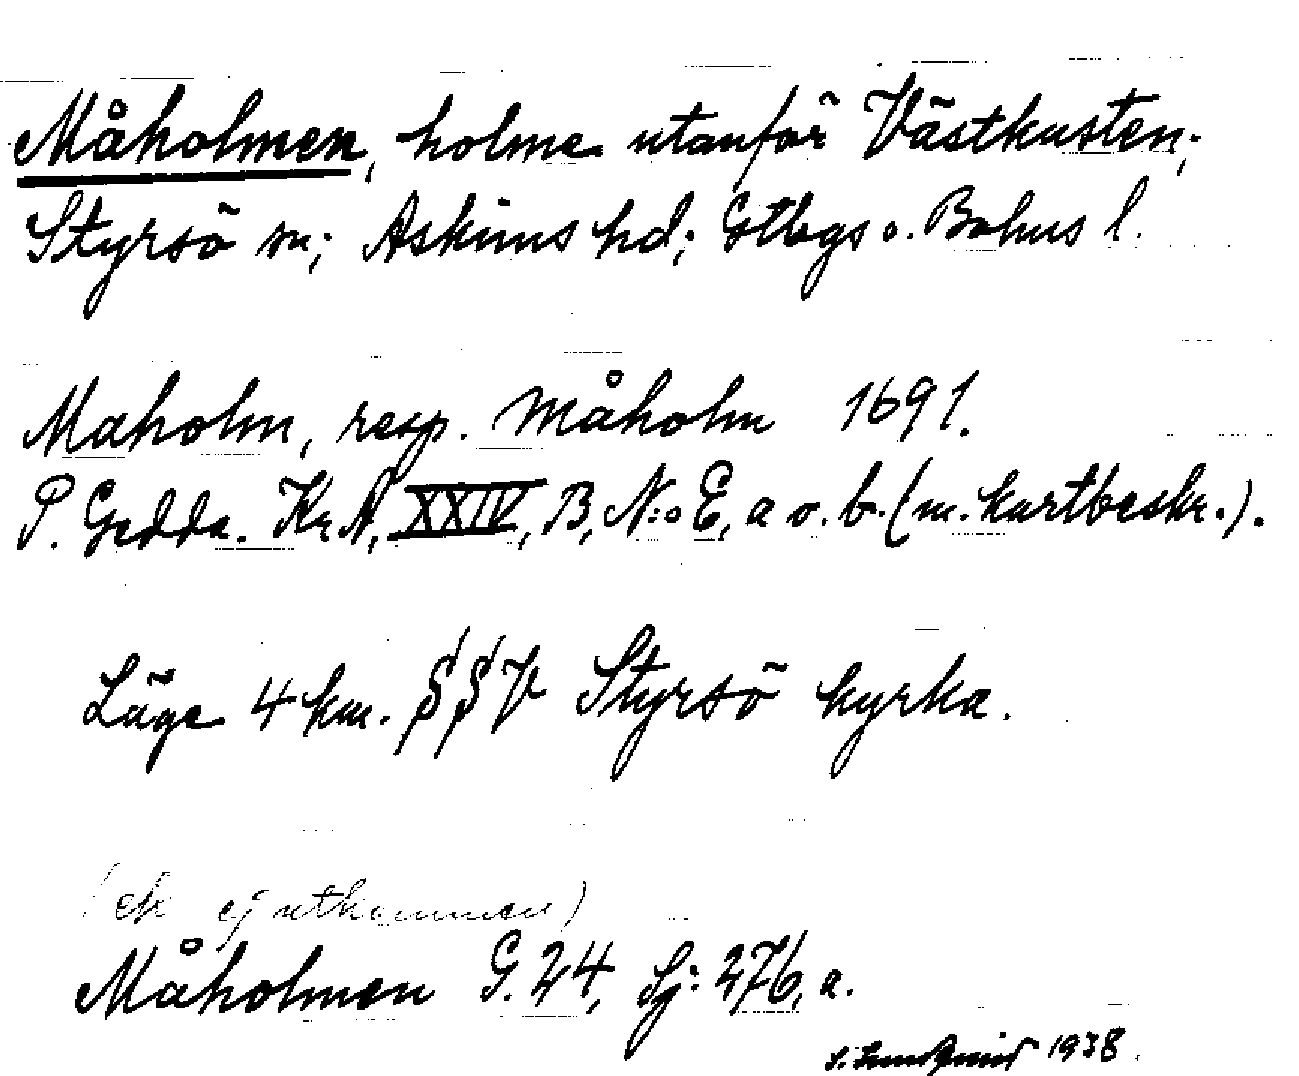 Måholmen, holme utanför Västkusten;
Styrsö sn; Askims hd; Gtbgs o. Bohus l.
Maholm, resp. Måholm 1691.
P. Gedda. Kr.A. XXIV, B, N:o E, a o. b. (m. kartbeskr.).
Läge 4 km. SSV Styrsö kyrka.
(ek ej utkommen)
Måholmen G. 24, Sj: 276, a.
S. Lundqvist 1938